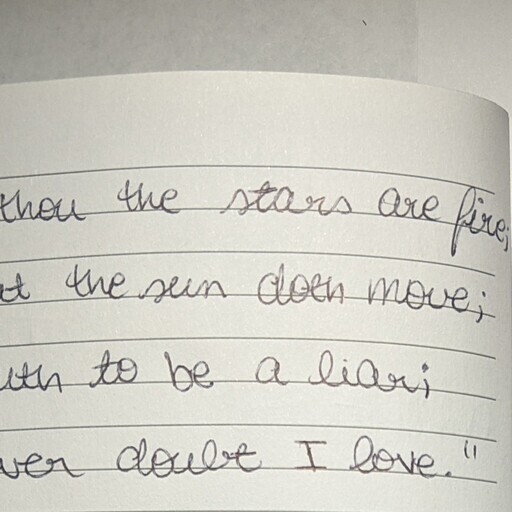 thou the stars are fire;
the sun doth move;
to be a liar;
doubt I love."